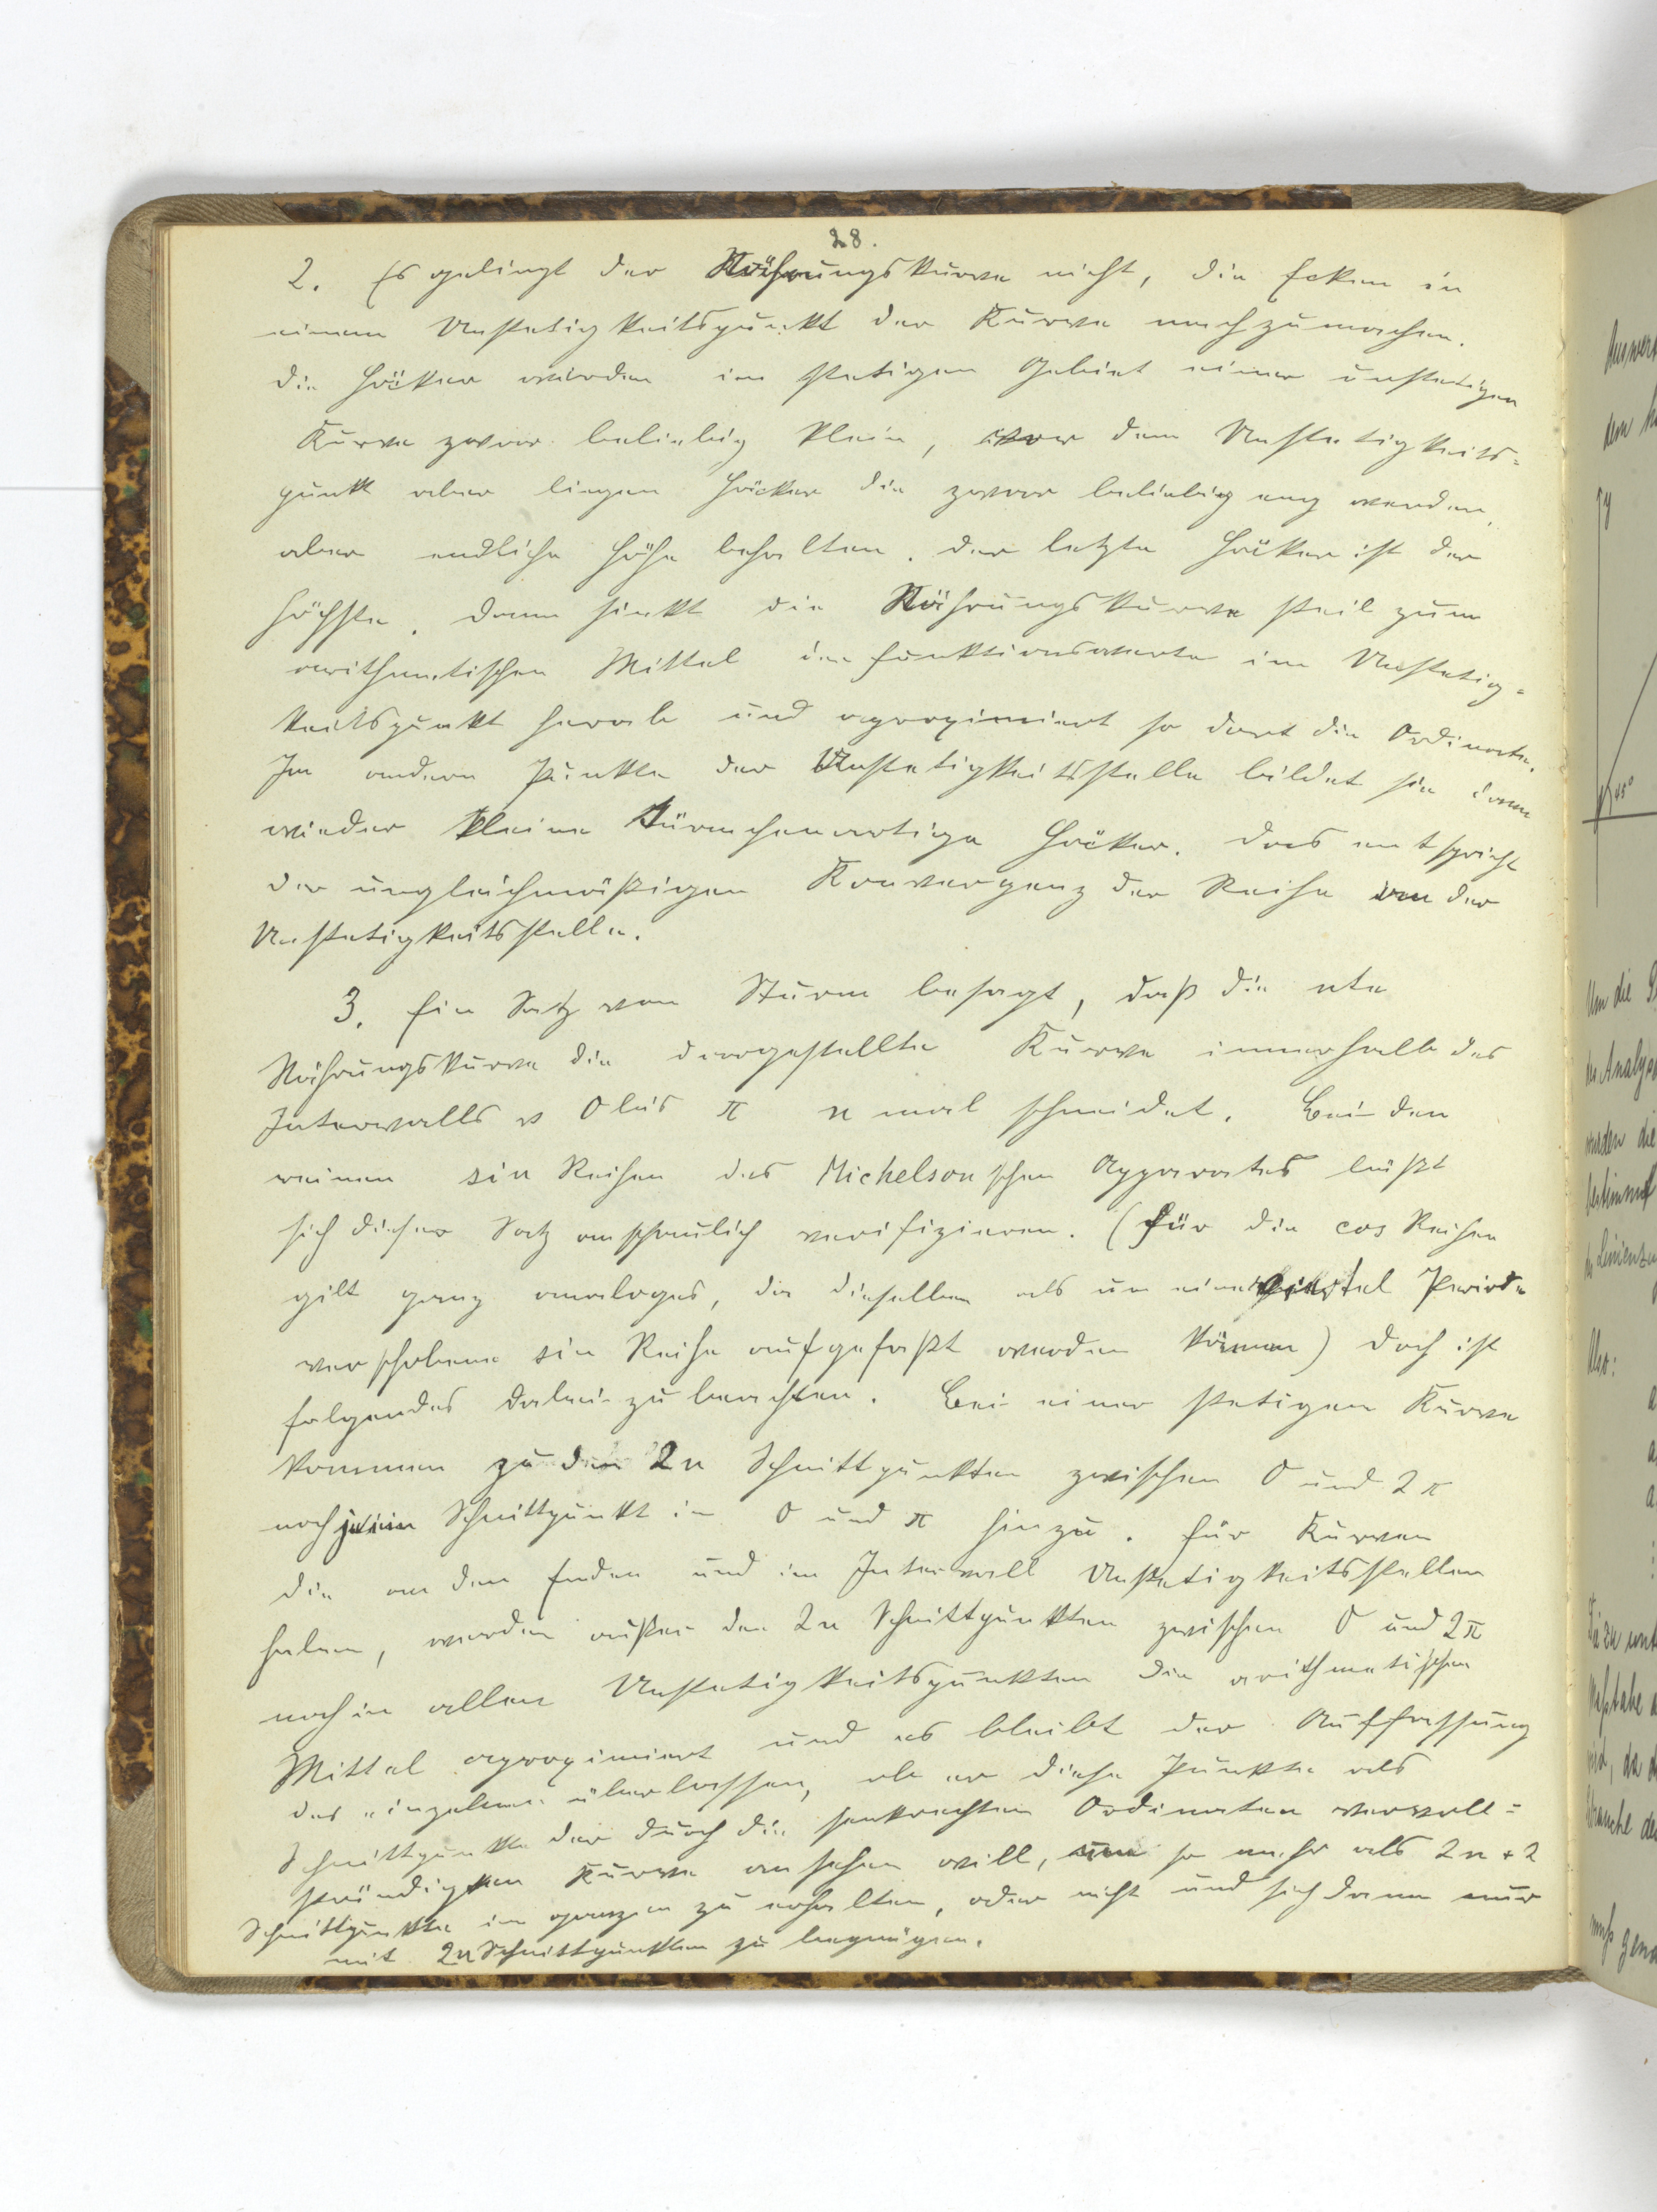 28.
2. Es gelingt der Näherungskurve nicht, die Ecken in
einem Unstetigkeitspunkt der Kurve nachzumachen.
Die Höcker würden im stetigen Gebiet einer unstetigen
Kurve zwar beliebig klein, vor dem Unstetigkeits=
punkt aber liegen Höcker die zwar beliebig eng werden,
aber endliche Höhe behalten. Der letzte Höcker ist der
höchste. Dann sinkt die Näherungskurve steil zum
arithmetischen Mittel der Funktionswerte im Unstetig=
keitspunkt herab und approximiert so dort die Ordinate.
Im andern Punkte der Unstetigkeitsstelle bildet sie dann
wieder kleine türmchenartige Höcker. Das entspricht
der ungleichmäßigen Konvergenz der Reihe an der
Unstetigkeitsstelle.
3. Ein Satz von Sturm besagt, daß die nte
Näherungskurve die dargestellte Kurve innerhalb des
Intervalls 0 bis π n mal schneidet. Bei den
reinen sin Reihen des Michelsonschen Apparates läßt
sich dieser Satz anschaulich verifizieren. (Für die cos Reihen
gilt ganz analoges, da dieselben als um eine viertel Periode
verschobene sin Reihe aufgefaßt werden können) Doch ist
folgendes dabei zu beachten. Bei einer stetigen Kurve
kommen zu den 2n Schnittpunkten zwischen 0 und 2π
noch je ein Schnittpunkt in 0 und π hinzu. Für Kurven
die an den Enden und im Intervall Unstetigkeitsstellen
haben, werden außer den 2n Schnittpunkten zwischen 0 und 2π
noch in allen Unstetigkeitspunkten die arithmetischen
Mittel approximiert und es bleibt der Auffassung
des einzelnen überlassen, ob er diese Punkte als
Schnittpunkte der durch die senkrechten Ordinaten vervoll=
ständigten Kurve ansehen will, um so mehr als 2n+2
Schnittpunkte im ganzen zu erhalten, oder nicht und sich dann nur
mit 2n Schnittpunkten zu begnügen.